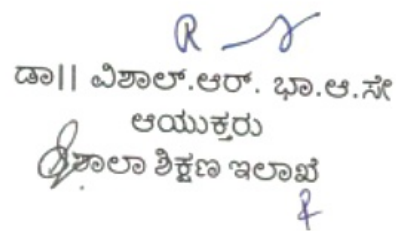 ಡಾ|| ವಿಶಾಲ್.ಆರ್. ಭಾ.ಆ.ಸೇ
ಆಯುಕ್ತರು
ಶಾಲಾ ಶಿಕ್ಷಣ ಇಲಾಖೆ